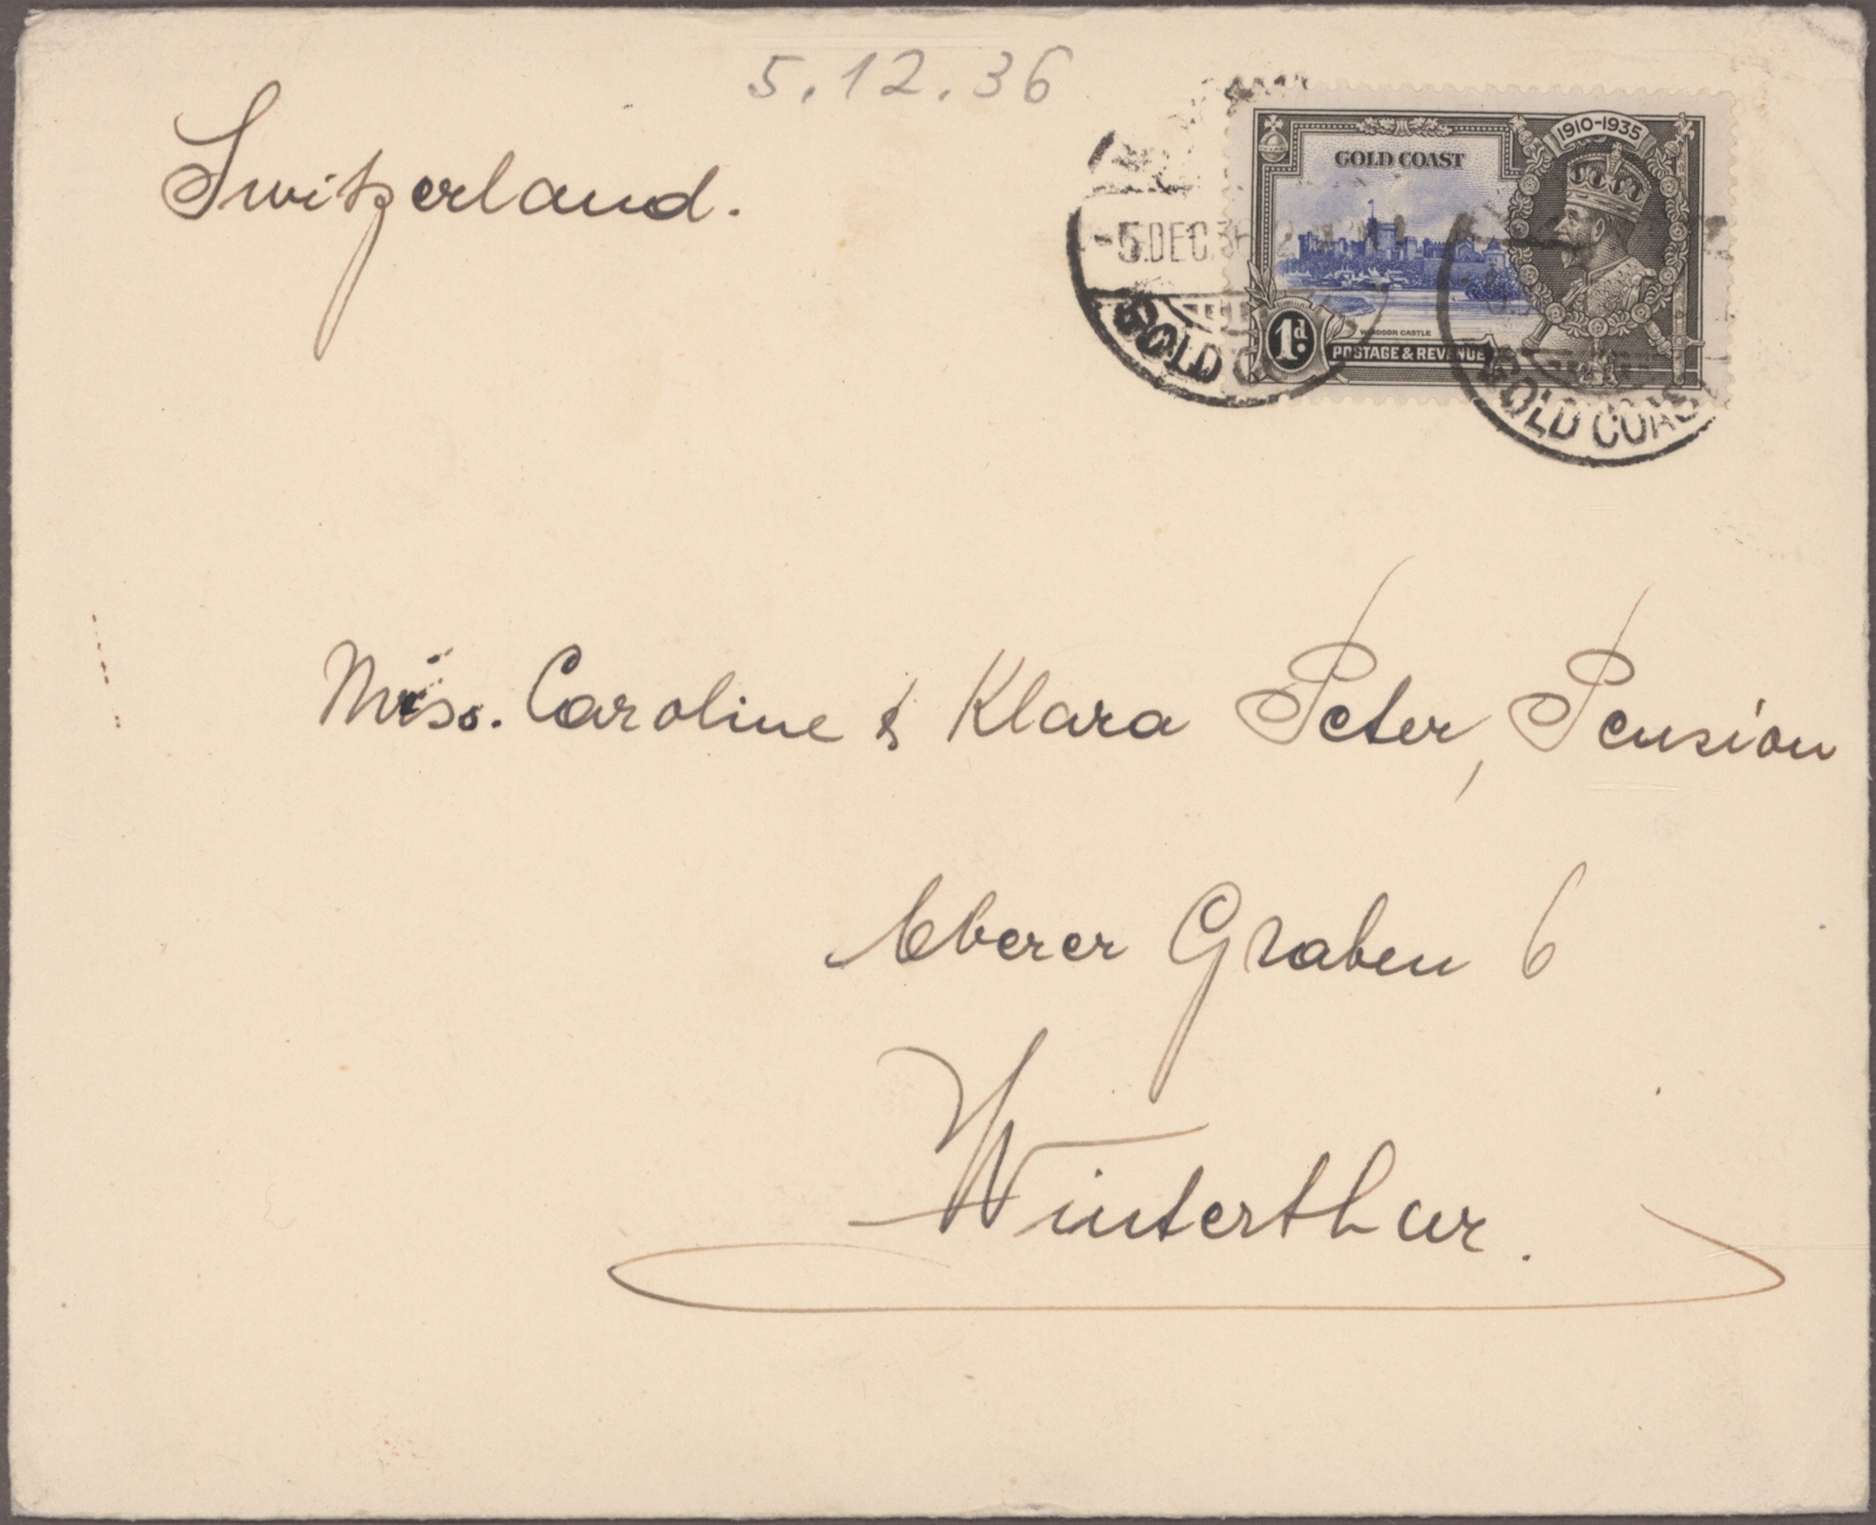 5.12.36
Switzerland.
1910-1935
GOLD COAST
-5.DEC.36
WINDSOR CASTLE
1d
POSTAGE & REVENUE
GOLD
GOLD COAS
Miss. Caroline & Klara Peter, Pension
Oberer Graben 6
Winterthur.